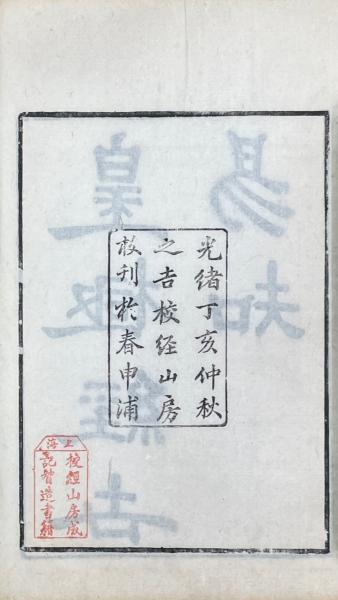 光緒丁亥仲秋
之吉校經山房
刊於春申浦
上海
校經山房成
記督造書籍